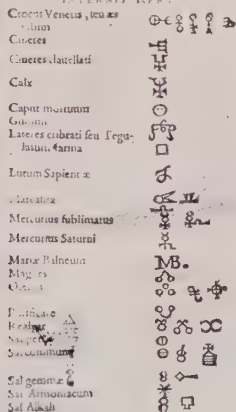 Crocus Veneris, seu æs
Cineres
Cineres clavellati
Calx
Caput mortuum
Lateres cribrati seu
farina
Lutum Sapientiæ
Mercurius sublimatus
Mercurius Saturni
Mariæ Balneum MB.
Realgar
Sal commune
Sal gemmæ
Sal Armoniacum
Sal Alkali